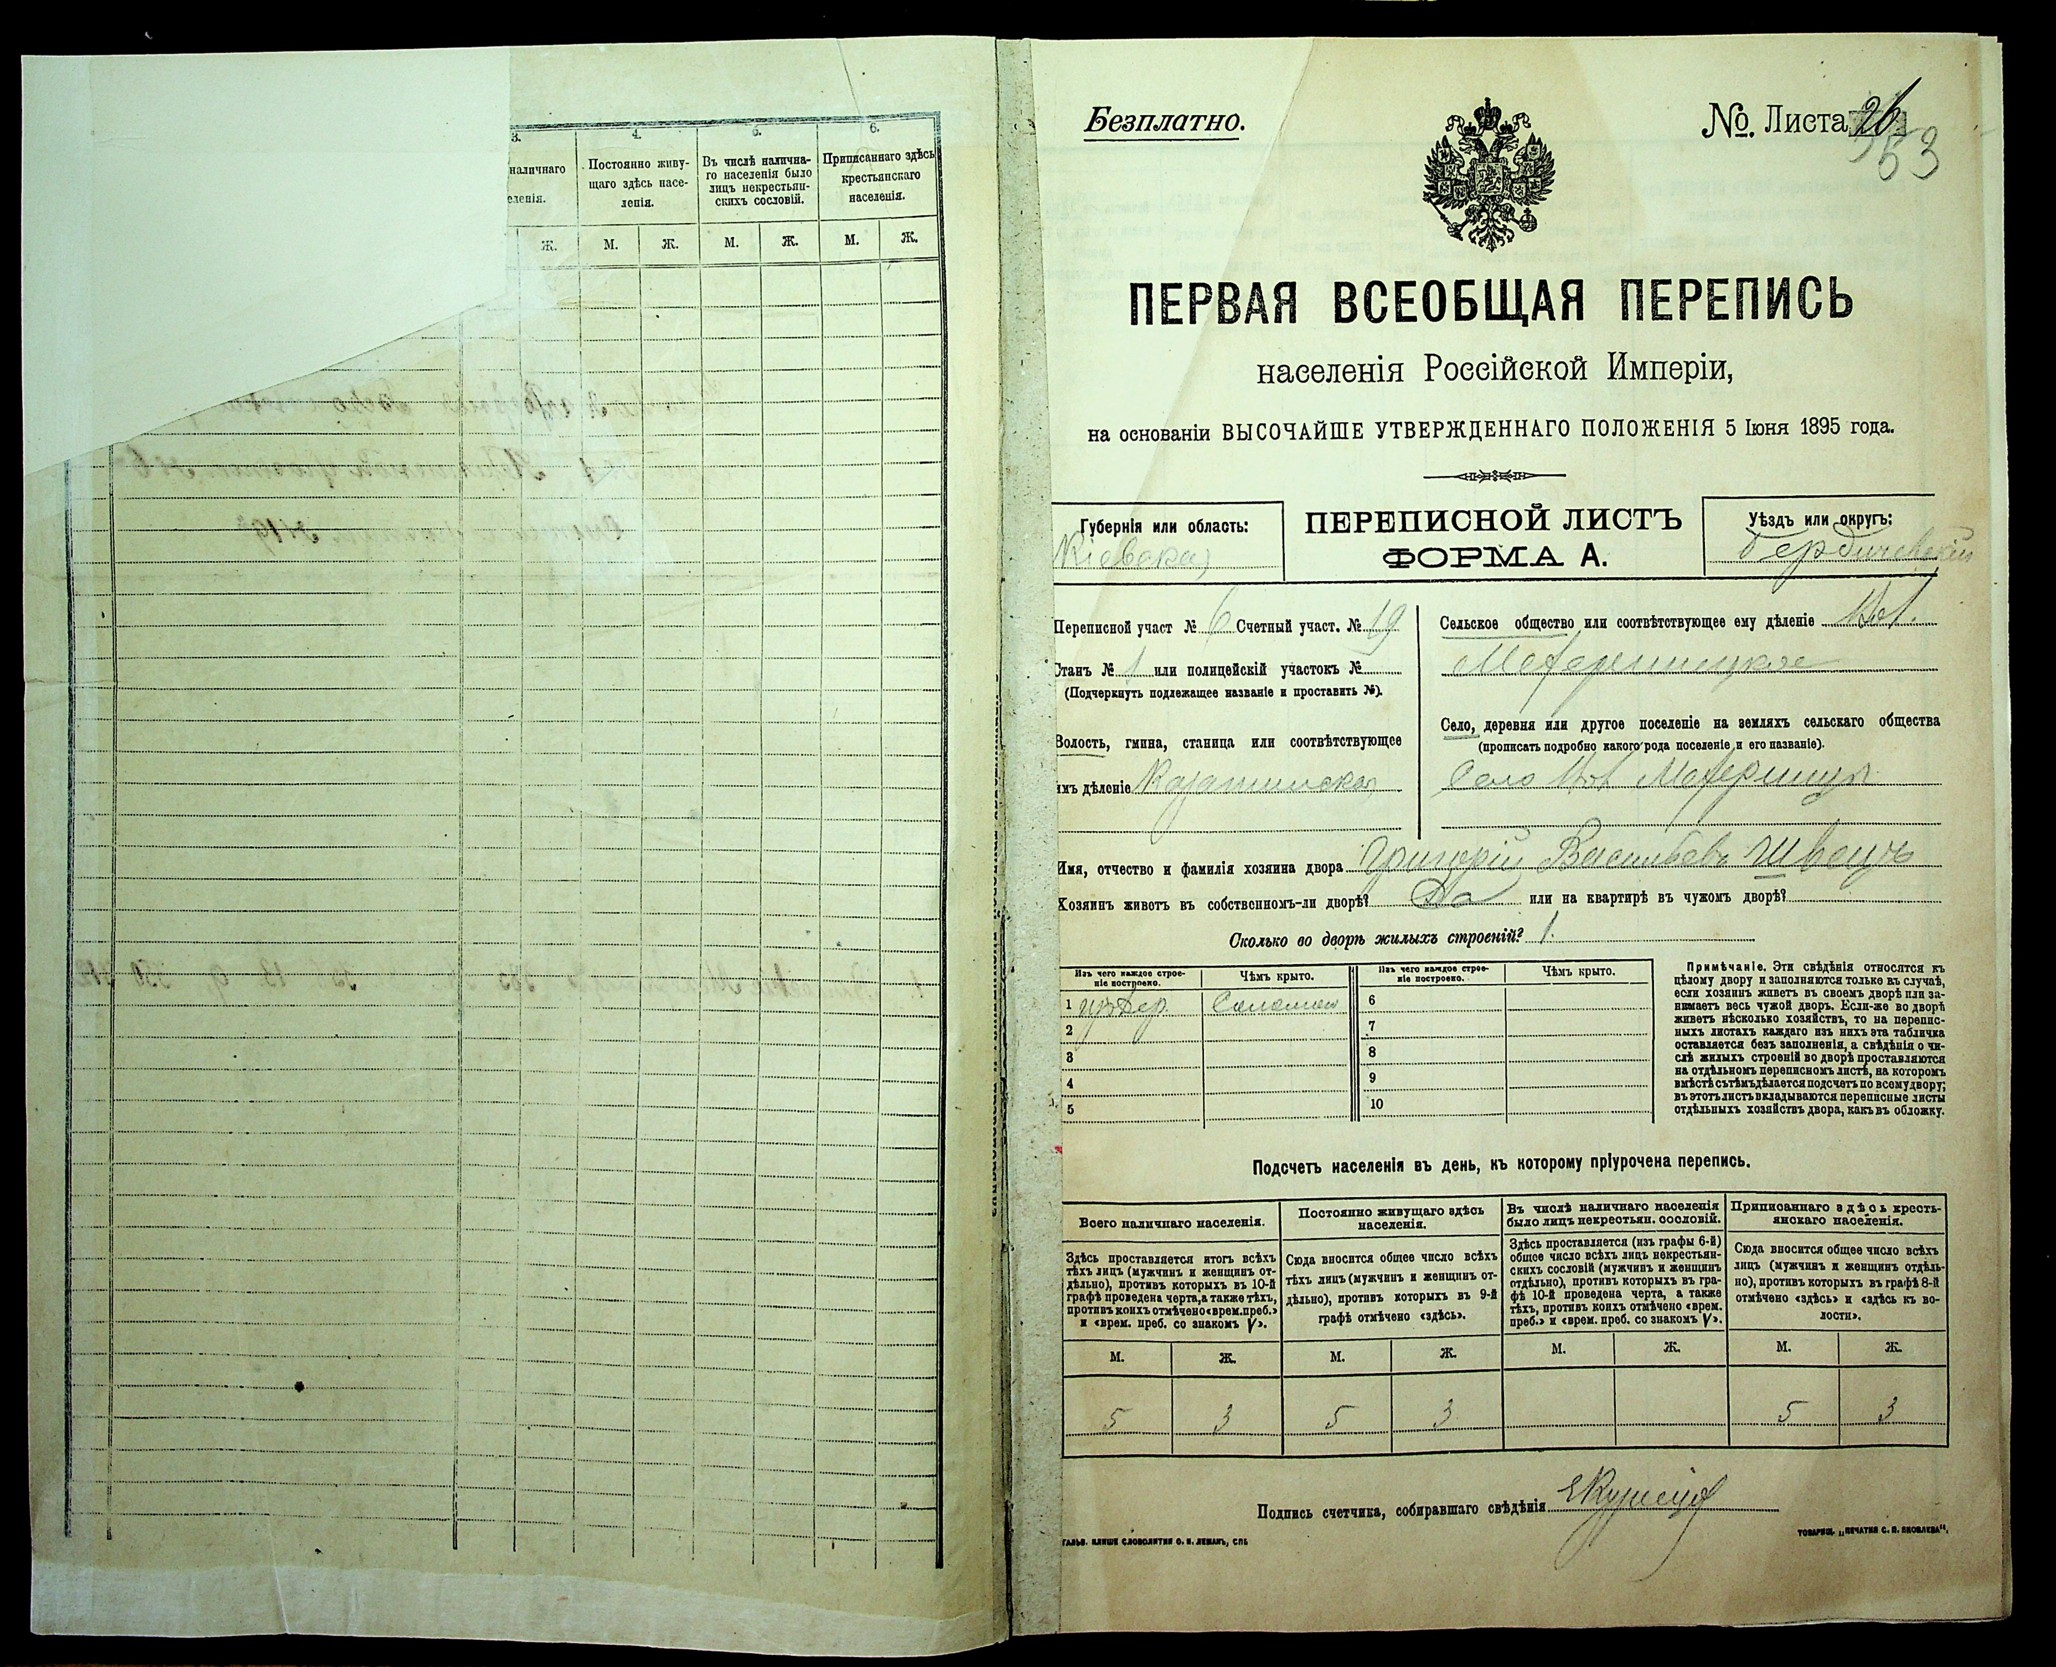 3. 4. 5. 6.
наличнаго
еленія.
Постоянно живу-
щаго здѣсь насе-
ленія.
Въ числѣ налична-
го населенія было
лицъ некрестьян-
скихъ сословій.
Приписаннаго здѣсь
крестьянскаго
населенія.
Ж. М. Ж. М. Ж. М. Ж.
Безплатно.
№. Листа 26
53
ПЕРВАЯ ВСЕОБЩАЯ ПЕРЕПИСЬ
населенія Россійской Имперіи,
на основаніи ВЫСОЧАЙШЕ УТВЕРЖДЕННАГО ПОЛОЖЕНІЯ 5 Іюня 1895 года.
Губернія или область:
Кіевская
ПЕРЕПИСНОЙ ЛИСТЪ
ФОРМА А.
Уѣздъ или округъ:
Бердичевскій
Переписной участ № 6 Счетный участ. № 19
Станъ № 1 или полицейскій участокъ №
(Подчеркнуть подлежащее названіе и проставить №).
Волость, гмина, станица или соотвѣтствующее
имъ дѣленіе Казатинская
Сельское общество или соотвѣтствующее ему дѣленіе
Село, деревня или другое поселеніе на земляхъ сельскаго общества
(прописать подробно какого рода поселеніе и его названіе).
Село
Имя, отчество и фамилія хозяина двора Григорій Васильевъ Швецъ
Хозяинъ живетъ въ собственномъ-ли дворѣ? Да или на квартирѣ въ чужомъ дворѣ?
Сколько во дворѣ жилыхъ строеній? 1.
Изъ чего каждое строе-
ніе построено.
Чѣмъ крыто.
Изъ чего каждое строе-
ніе построено.
Чѣмъ крыто.
1 изъ дер. Соломой 6
2 7
3 8
4 9
5 10
Примѣчаніе. Эти свѣдѣнія относятся къ
цѣлому двору и заполняются только въ случаѣ,
если хозяинъ живетъ въ своемъ дворѣ или за-
нимаетъ весь чужой дворъ. Если-же во дворѣ
живетъ нѣсколько хозяйствъ, то на перепис-
ныхъ листахъ каждаго изъ нихъ эта табличка
оставляется безъ заполненія, а свѣдѣнія о чи-
слѣ жилыхъ строеній во дворѣ проставляются
на отдѣльномъ переписномъ листѣ, на которомъ
вмѣстѣ съ тѣмъ дѣлается подсчетъ по всему двору;
въ этотъ листъ вкладываются переписные листы
отдѣльныхъ хозяйствъ двора, какъ въ обложку.
Подсчетъ населенія въ день, къ которому пріурочена перепись.
Всего наличнаго населенія.
Постоянно живущаго здѣсь
населенія.
Въ числѣ наличнаго населенія
было лицъ некрестьян. сословій.
Приписаннаго здѣсь кресть-
янскаго населенія.
Здѣсь проставляется итогъ всѣхъ
тѣхъ лицъ (мужчинъ и женщинъ от-
дѣльно), противъ которыхъ въ 10-й
графѣ проведена черта, а также тѣхъ,
противъ коихъ отмѣчено «врем. преб.»
и «врем. преб. со знакомъ V».
Сюда вносится общее число всѣхъ
тѣхъ лицъ (мужчинъ и женщинъ от-
дѣльно), противъ которыхъ въ 9-й
графѣ отмѣчено «здѣсь».
Здѣсь проставляется (изъ графы 6-й)
общее число всѣхъ лицъ некрестьян-
скихъ сословій (мужчинъ и женщинъ
отдѣльно), противъ которыхъ въ гра-
фѣ 10-й проведена черта, а также
тѣхъ, противъ коихъ отмѣчено «врем.
преб.» и «врем. преб. со знакомъ V».
Сюда вносится общее число всѣхъ
лицъ (мужчинъ и женщинъ отдѣль-
но), противъ которыхъ въ графѣ 8-й
отмѣчено «здѣсь» и «здѣсь къ во-
лости».
М. Ж. М. Ж. М. Ж. М. Ж.
5 3 5 3 5 3
Подпись счетчика, собиравшаго свѣдѣнія
ГАЛЬВ. КЛИШЕ СЛОВОЛИТНИ О. И. ЛЕМАНЪ, СПБ
ТОВАРИЩ. „ПЕЧАТНИ С. П. ЯКОВЛЕВА“.